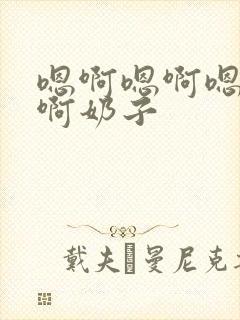 嗯啊嗯啊嗯
啊奶子
戴夫曼尼克